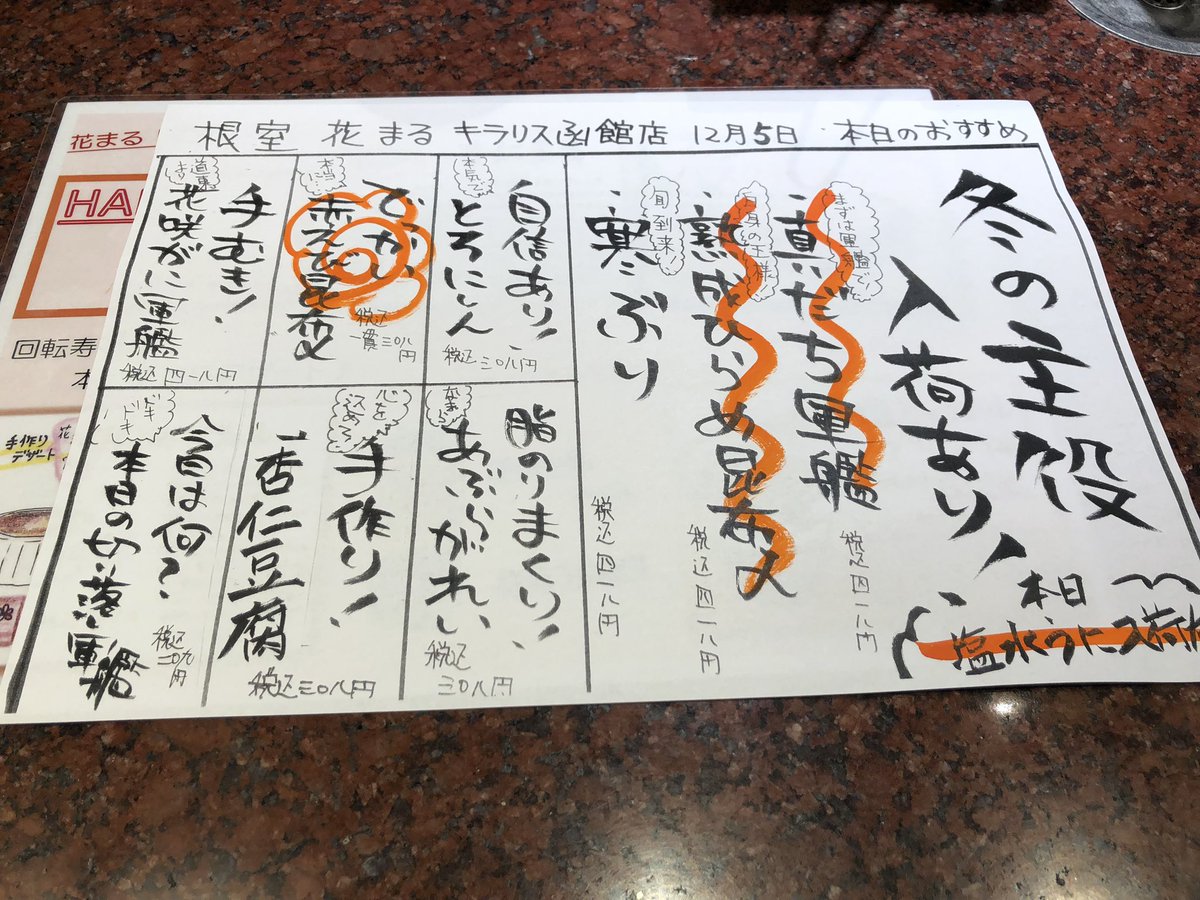 根室 花まる キラリス函館店 12月5日 本日のおすすめ
冬の主役
入荷あり!
本日
塩水うに入荷
まずは軍艦で
・真だち軍艦
税込四一八円
白身の王様
・熟成ひらめ昆布〆
税込四一八円
旬到来
・寒ぶり
税込四一八円
自信あり!
本気で
とろにしん
税込三〇八円
本当に
でっかい
赤えび昆布〆
税込
一貫三〇八円
手むき!
道東
より
花咲がに軍艦
税込四一八円
脂のりまくり!
なまら
あぶらがれい
税込
三〇八円
心を
込めて
手作り!
杏仁豆腐
税込三〇八円
今日は何?
ドキ
ドキ
本日の切り落し軍艦
税込
二〇九円
花まる
HA
回転寿
本
手作り
デザート
花